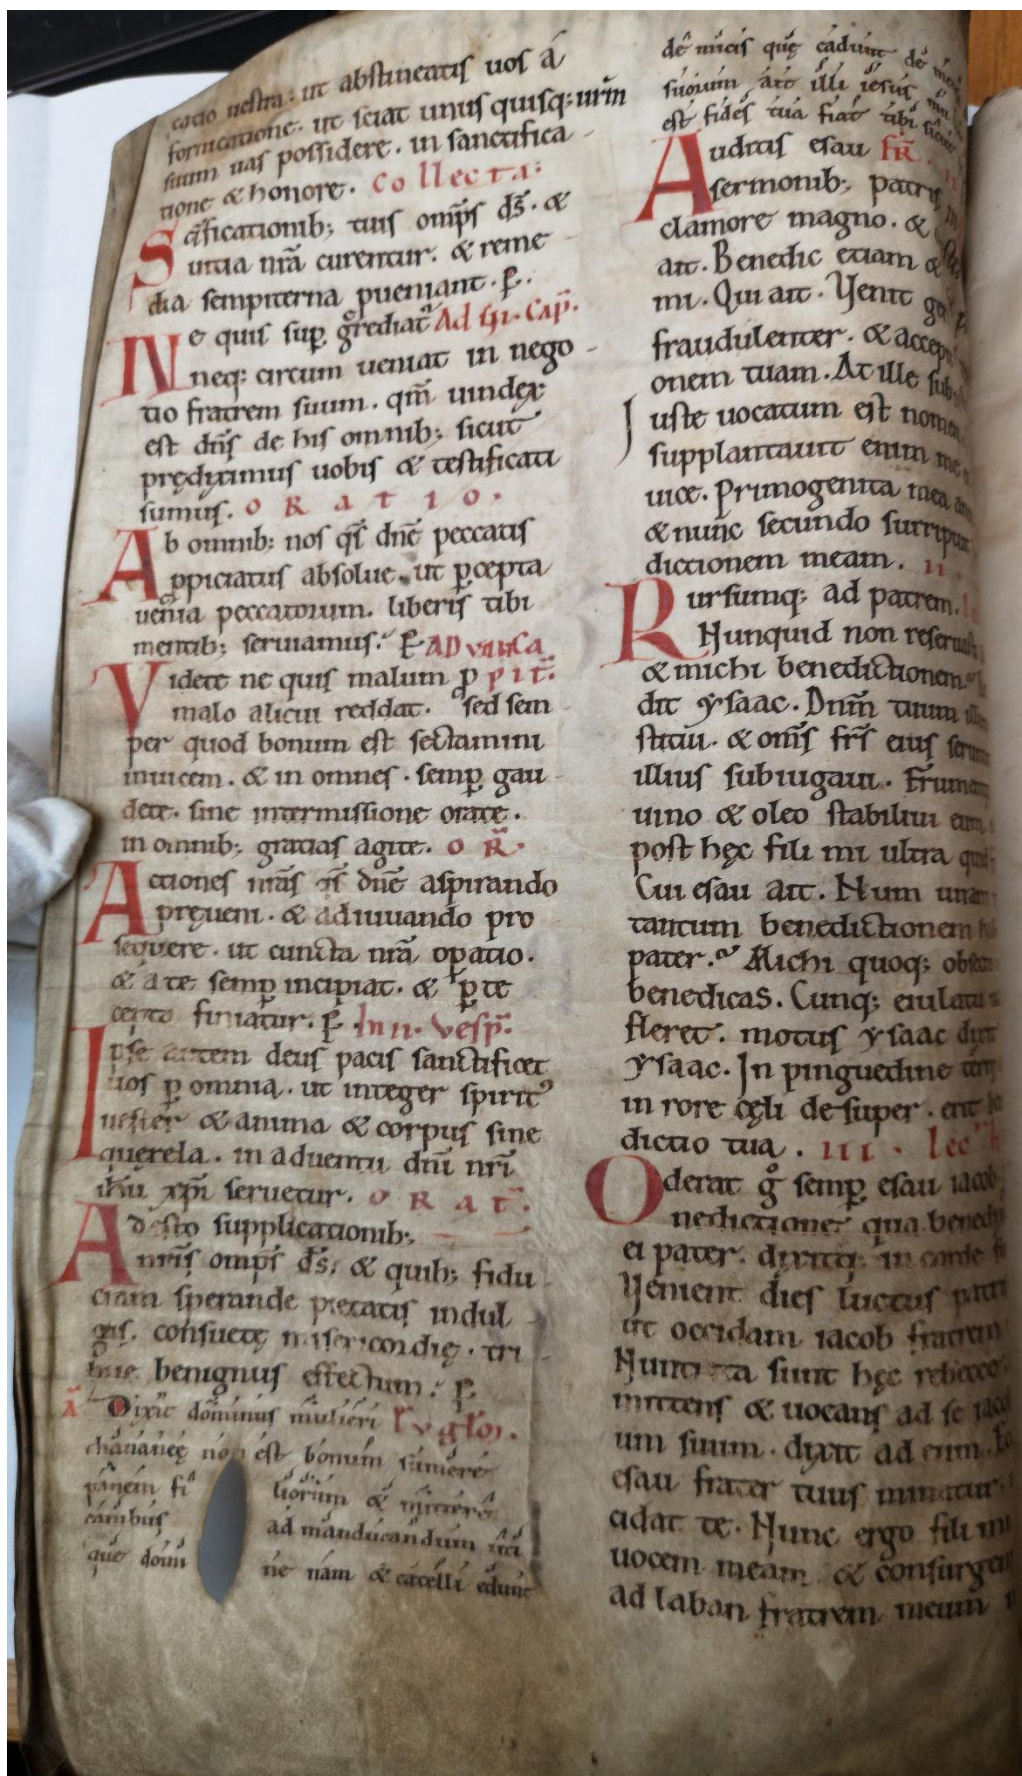 catio uestra. ut abstineatis uos a
fornicatione. ut sciat unus quisq; urm̄
suum uas possidere. in sanctifica
tione & honore. Collecta.
Sc̄ificationib; tuis omp̄s d̄s. &
uitia nr̄a curentur. & reme
dia sempiterna ꝓueniant. ꝑ.
Ne quis sup̱ g̊rediat᷑ Ad III. Cap̄.
neq; circum ueniat in nego
tio fratrem suum. qm̄ uindex
est dn̄s de his omnib; sicut
prędiximus uobis & testificati
sumus. ORATIO.
Ab omnib; nos qs̄ dn̄e peccatis
ꝓpiciatus absolue. ut ꝑcepta
uenia peccatorum. liberis tibi
mentib; seruiamus. ꝑ AD
Videte ne quis malum ꝓ
malo alicui reddat. sed sem
per quod bonum est sectamini
inuicem. & in omnes. semꝑ gau
dete. sine intermissione orate.
in omnib; gratias agite. OR̄.
Actiones nr̄as qs̄ dn̄e aspirando
pręueni. & adiuuando pro
sequere. ut cuncta nr̄a oꝑatio.
& a te semꝑ incipiat. & ꝑ te
cepta finiatur. ꝑ. In II. Vesp̄.
Ipse autem deus pacis sanctificet
uos ꝑ omnia. ut integer spirit᷒
uester & anima & corpus sine
querela. in aduentu dn̄i nr̄i
ih̄u xp̄i seruetur. ORAT̄.
Adesto supplicationib;
nr̄is omp̄s d̄s. & quib; fidu
ciam sperande pietatis indul
gis. consuetę misericordię. tri
bue benignus effectum. ꝑ
ā Dixit dominus mulieri
chananeę non est bonum sumere
panem fi liorum & mittere
canibus ad manducandum
que domi ne nam & catelli edunt
de micis quę cadunt de
suorum ait illi iesus
est fides tua fiat tibi sicut
Auditis esau FR̄.
sermonib; patris
clamore magno. &
ait. Benedic etiam &
mi. Qui ait. Uenit
fraudulenter. & accep
onem tuam. At ille sub
Iuste uocatum est nomen
supplantauit enim me
uice. Primogenita mea
& nunc secundo surripuit
dictionem meam. II.
Rursumq; ad patrem.
Nunquid non reseruasti
& michi benedictionem.
dit ysaac. Dnm̄ tuum illum
statui. & oms̄ frs̄ eius
illius subiugaui. Frumen
uino & oleo stabiliui eum.
post hęc fili mi ultra quid
Cui esau ait. Num unam
tantum benedictionem
pater. Michi quoq; obsecro
benedicas. Cunq; eiulatu
fleret. motus ysaac dixit
ysaac. In pinguedine
in rore cęli desuper. erit
dictio tua. III. Lec
Oderat g̊ semꝑ esau iacob
nedictione qua bened
ei pater. dixitq; in corde
Uenient dies luctus patris
ut occidam iacob fratrem
Nuntiata sunt hęc rebecce
mittens & uocans ad se
um suum. dixit ad eum.
esau frater tuus minatur
cidat te. Nunc ergo fili mi
uocem meam & consurgens
ad laban fratrem meum